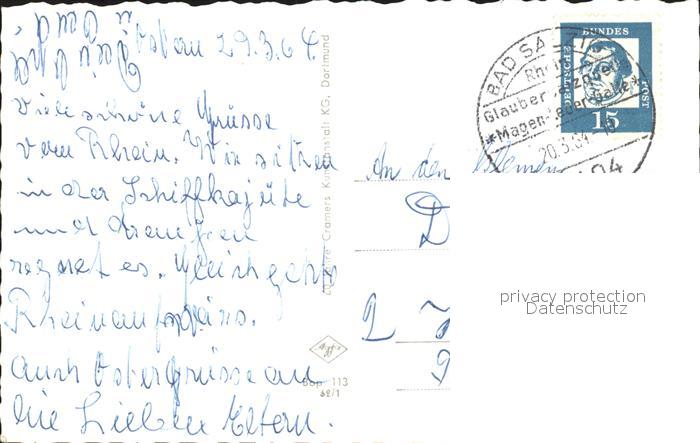 Ostern 29.3.64
Viele schöne Grüsse
vom Rhein. Wir sitzen
in der Schiffkajüte
und draußen
regnet es. Gleich geht's
Rheinaufwärts.
Auch Ostergrüsse an
die Lieben Eltern.
Cramers Kunstanstalt KG, Dortmund
Bop 113
62/1
An den
D
BAD SALZIG
Rhein
Glaubersalzquelle
*Magen-Leber-Galle*
20.3.64
DEUTSCHE
BUNDES
POST
15
privacy protection
Datenschutz